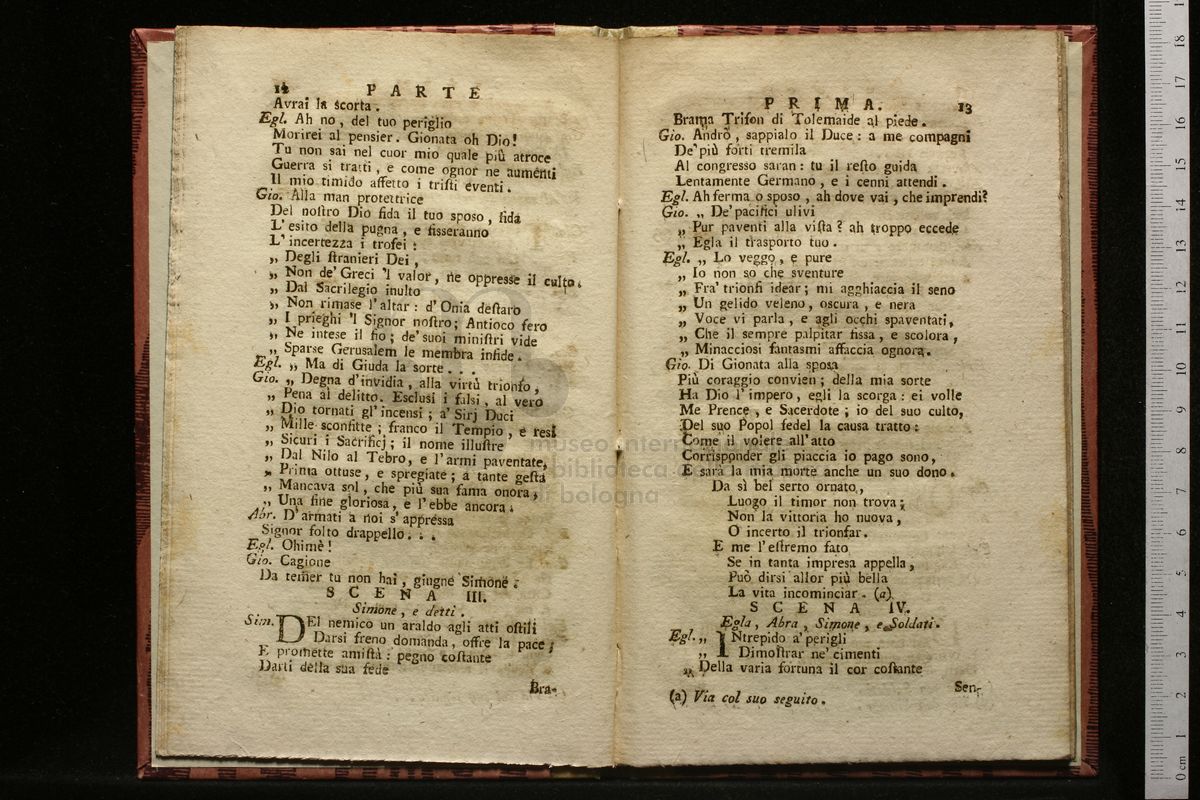 12 PARTE
Avrai la scorta.
Egl. Ah no, del tuo periglio
Morirei al pensier. Gionata oh Dio!
Tu non sai nel cuor mio quale più atroce
Guerra si tratti, e come ognor ne aumenti
Il mio timido affetto i tristi eventi.
Gio. Alla man protettrice
Del nostro Dio fida il tuo sposo, fida
L'esito della pugna, e fisseranno
L'incertezza i trofei:
„ Degli stranieri Dei,
„ Non de' Greci 'l valor, ne oppresse il culto.
„ Dal Sacrilegio inulto
„ Non rimase l'altar: d'Onia destaro
„ I prieghi 'l Signor nostro; Antioco fero
„ Ne intese il fio; de' suoi ministri vide
„ Sparse Gerusalem le membra infide.
Egl. „ Ma di Giuda la sorte...
Gio. „ Degna d'invidia, alla virtù trionfo,
„ Pena al delitto. Esclusi i falsi, al vero
„ Dio tornati gl'incensi; a' Sirj Duci
„ Mille sconfitte; franco il Tempio, e resi
„ Sicuri i Sacrificj; il nome illustre
„ Dal Nilo al Tebro, e l'armi paventate,
„ Prima ottuse, e spregiate; a tante gesta
„ Mancava sol, che più sua fama onora,
„ Una fine gloriosa, e l'ebbe ancora.
Abr. D'armati a noi s'appressa
Signor folto drappello...
Egl. Ohimè!
Gio. Cagione
Da temer tu non hai, giugne Simone.
SCENA III.
Simone, e detti.
Sim. DEl nemico un araldo agli atti ostili
Darsi freno domanda, offre la pace;
E promette amistà: pegno costante
Darti della sua fede
Bra-
PRIMA. 13
Brama Trifon di Tolemaide al piede.
Gio. Andrò, sappialo il Duce: a me compagni
De' più forti tremila
Al congresso saran: tu il resto guida
Lentamente Germano, e i cenni attendi.
Egl. Ah ferma o sposo, ah dove vai, che imprendi?
Gio. „ De' pacifici ulivi
„ Pur paventi alla vista? ah troppo eccede
„ Egla il trasporto tuo.
Egl. „ Lo veggo, e pure
„ Io non so che sventure
„ Fra' trionfi idear; mi agghiaccia il seno
„ Un gelido veleno, oscura, e nera
„ Voce vi parla, e agli occhi spaventati,
„ Che il sempre palpitar fissa, e scolora,
„ Minacciosi fantasmi affaccia ognora.
Gio. Di Gionata alla sposa
Più coraggio convien; della mia sorte
Ha Dio l'impero, egli la scorga: ei volle
Me Prence, e Sacerdote; io del suo culto,
Del suo Popol fedel la causa tratto:
Come il volere all'atto
Corrisponder gli piaccia io pago sono,
E sarà la mia morte anche un suo dono.
Da sì bel serto ornato,
Luogo il timor non trova;
Non la vittoria ho nuova,
O incerto il trionfar.
E me l'estremo fato
Se in tanta impresa appella,
Può dirsi allor più bella
La vita incominciar. (a)
SCENA IV.
Egla, Abra, Simone, e Soldati.
Egl. „ INtrepido a' perigli
„ Dimostrar ne' cimenti
„ Della varia fortuna il cor costante
Sen-
(a) Via col suo seguito.
museo inter
biblioteca
di bologna
0 cm 1 2 3 4 5 6 7 8 9 10 11 12 13 14 15 16 17 18